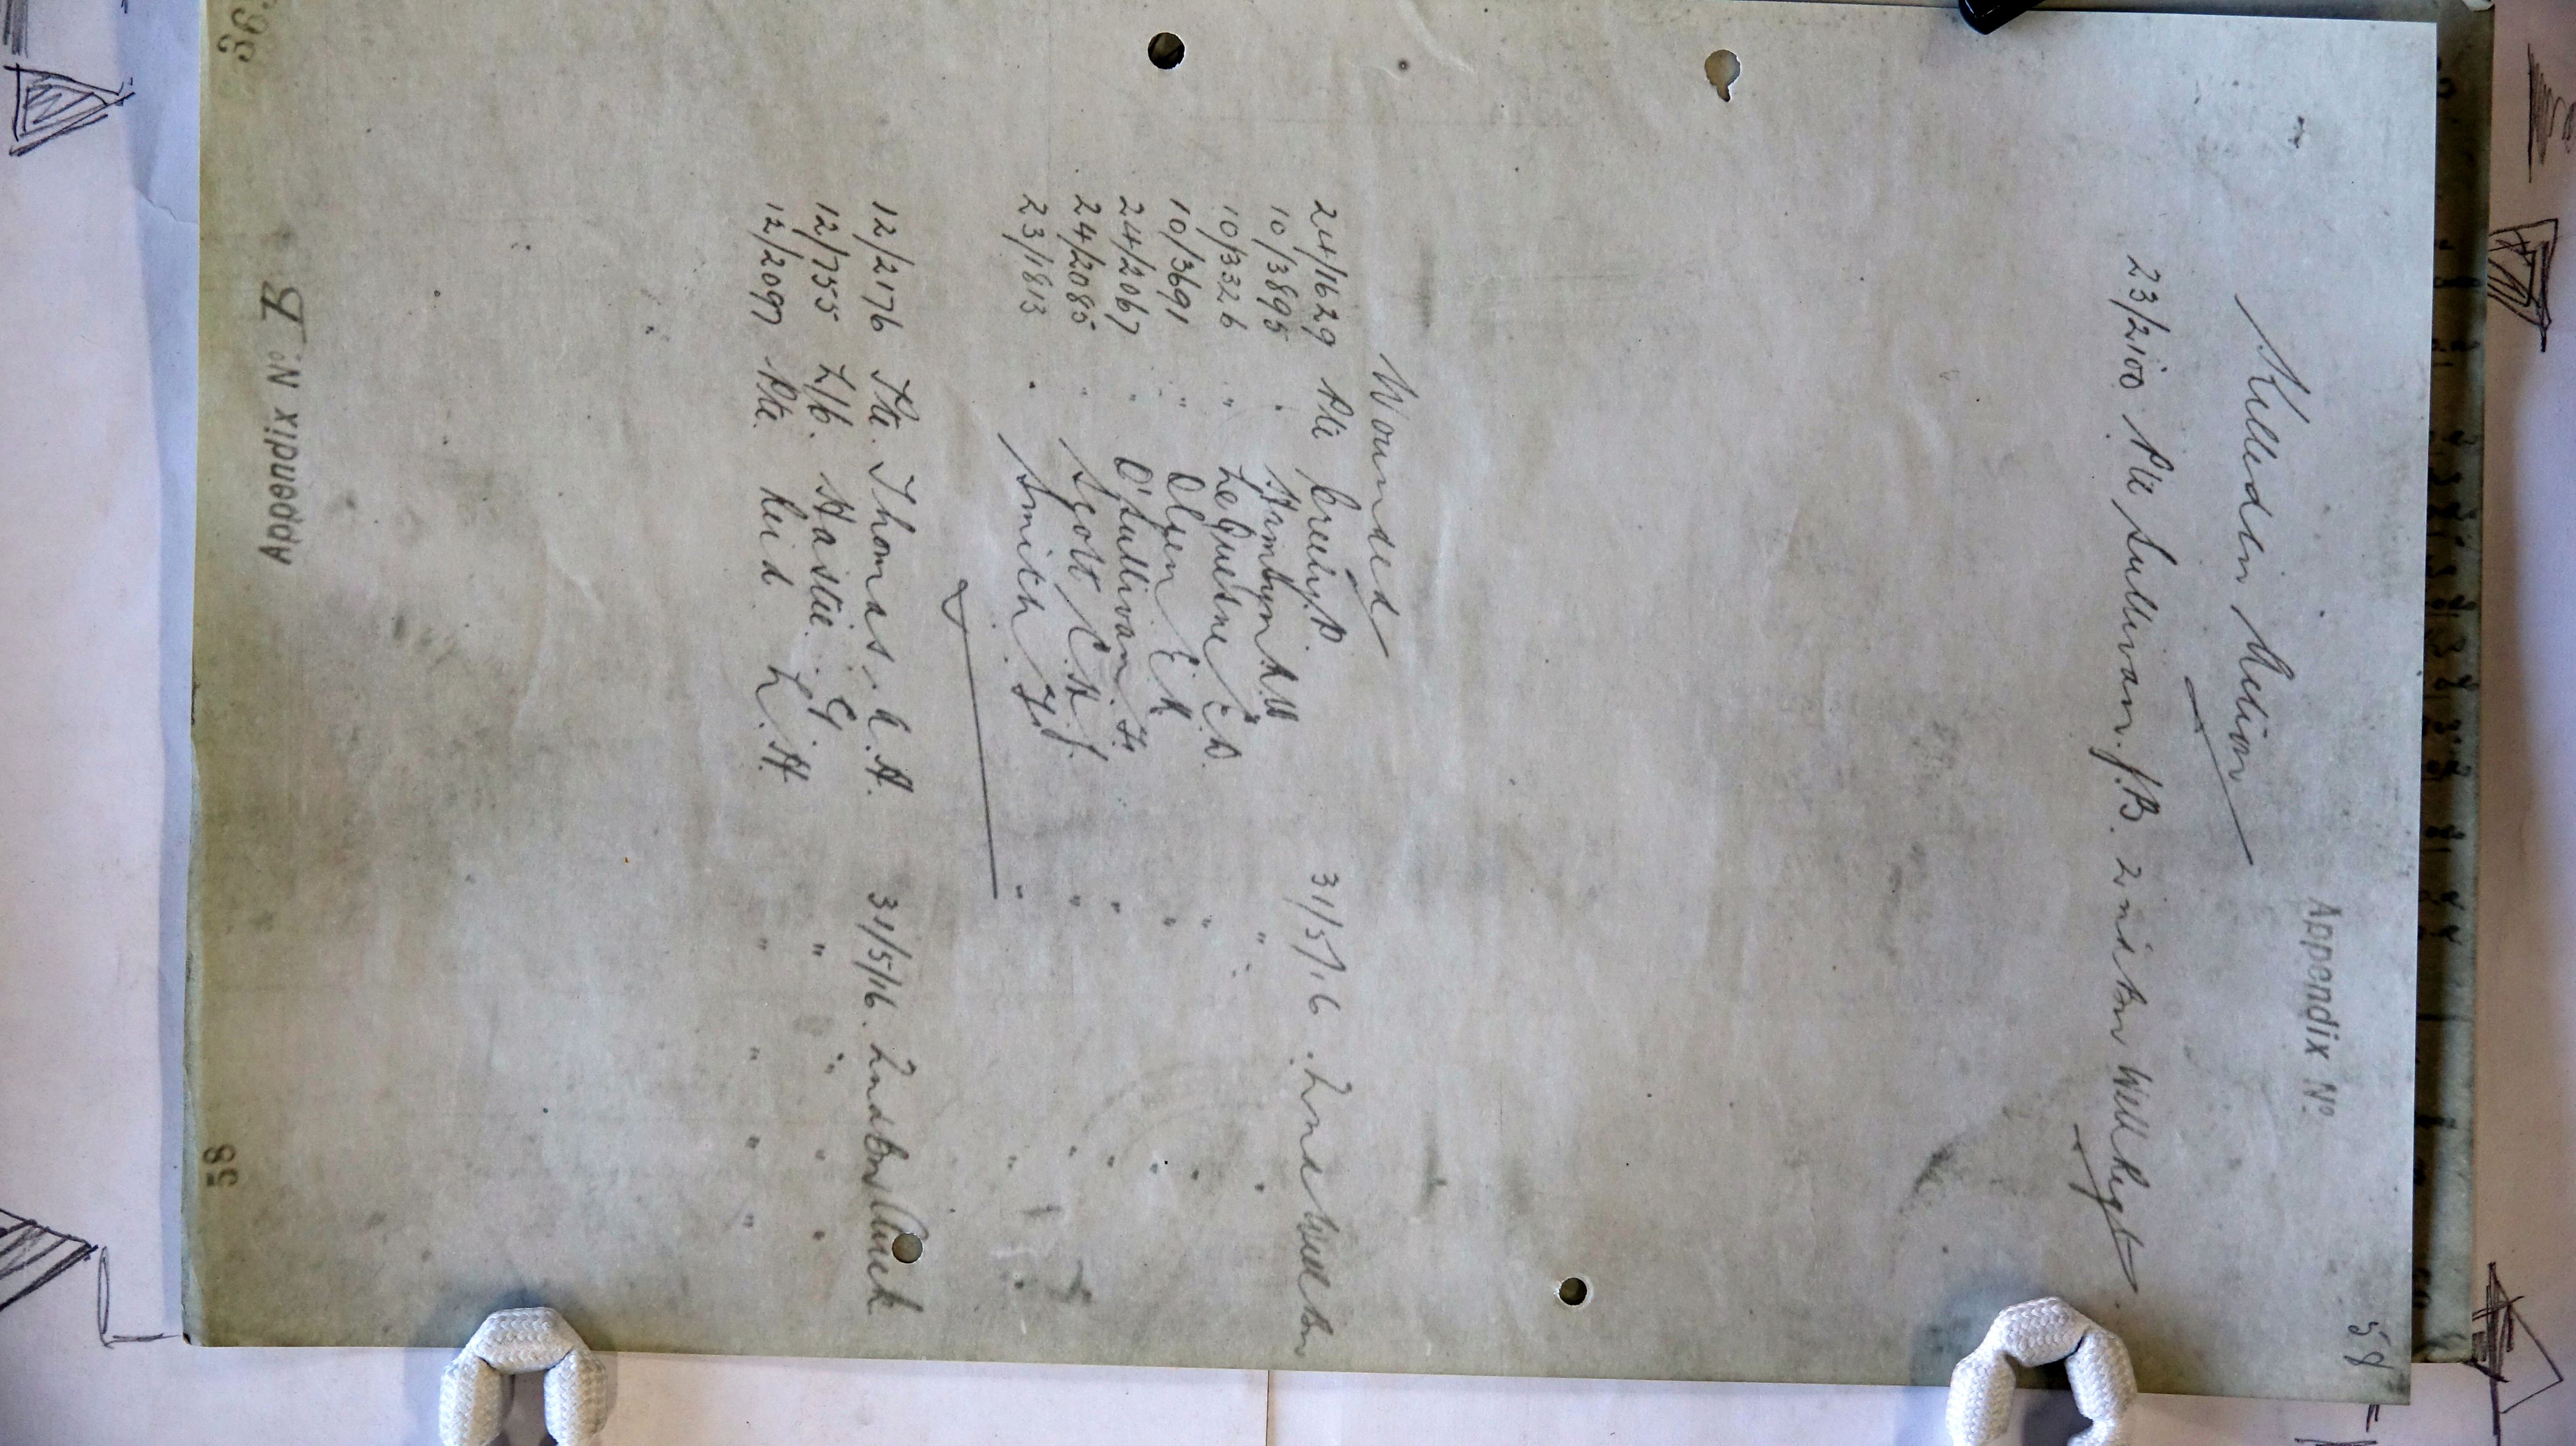 58
Appendix No.
Killed in Action
23/2100 Pte Sullivan. J. B. 2nd Bn Well Regt
Wounded
24/1629 Pte P. 31/5/16. 2nd Well Bn
10/3895 " Hamlyn A.W " "
10/3326 " Le Quesne E.D. " "
10/3691 " Olsen E A " "
24/2067 " O'Sullivan. H. " "
24/2085 " Scott C. H J. " "
23/1813 " Smith " "
12/2176 Pte. Thomas. C. A. 31/5/16. 2nd Bn Auck
12/755 L/C. Hastie. G " " " "
12/2097 Pte. Reid L. H " " " "
Appendix No. B
58